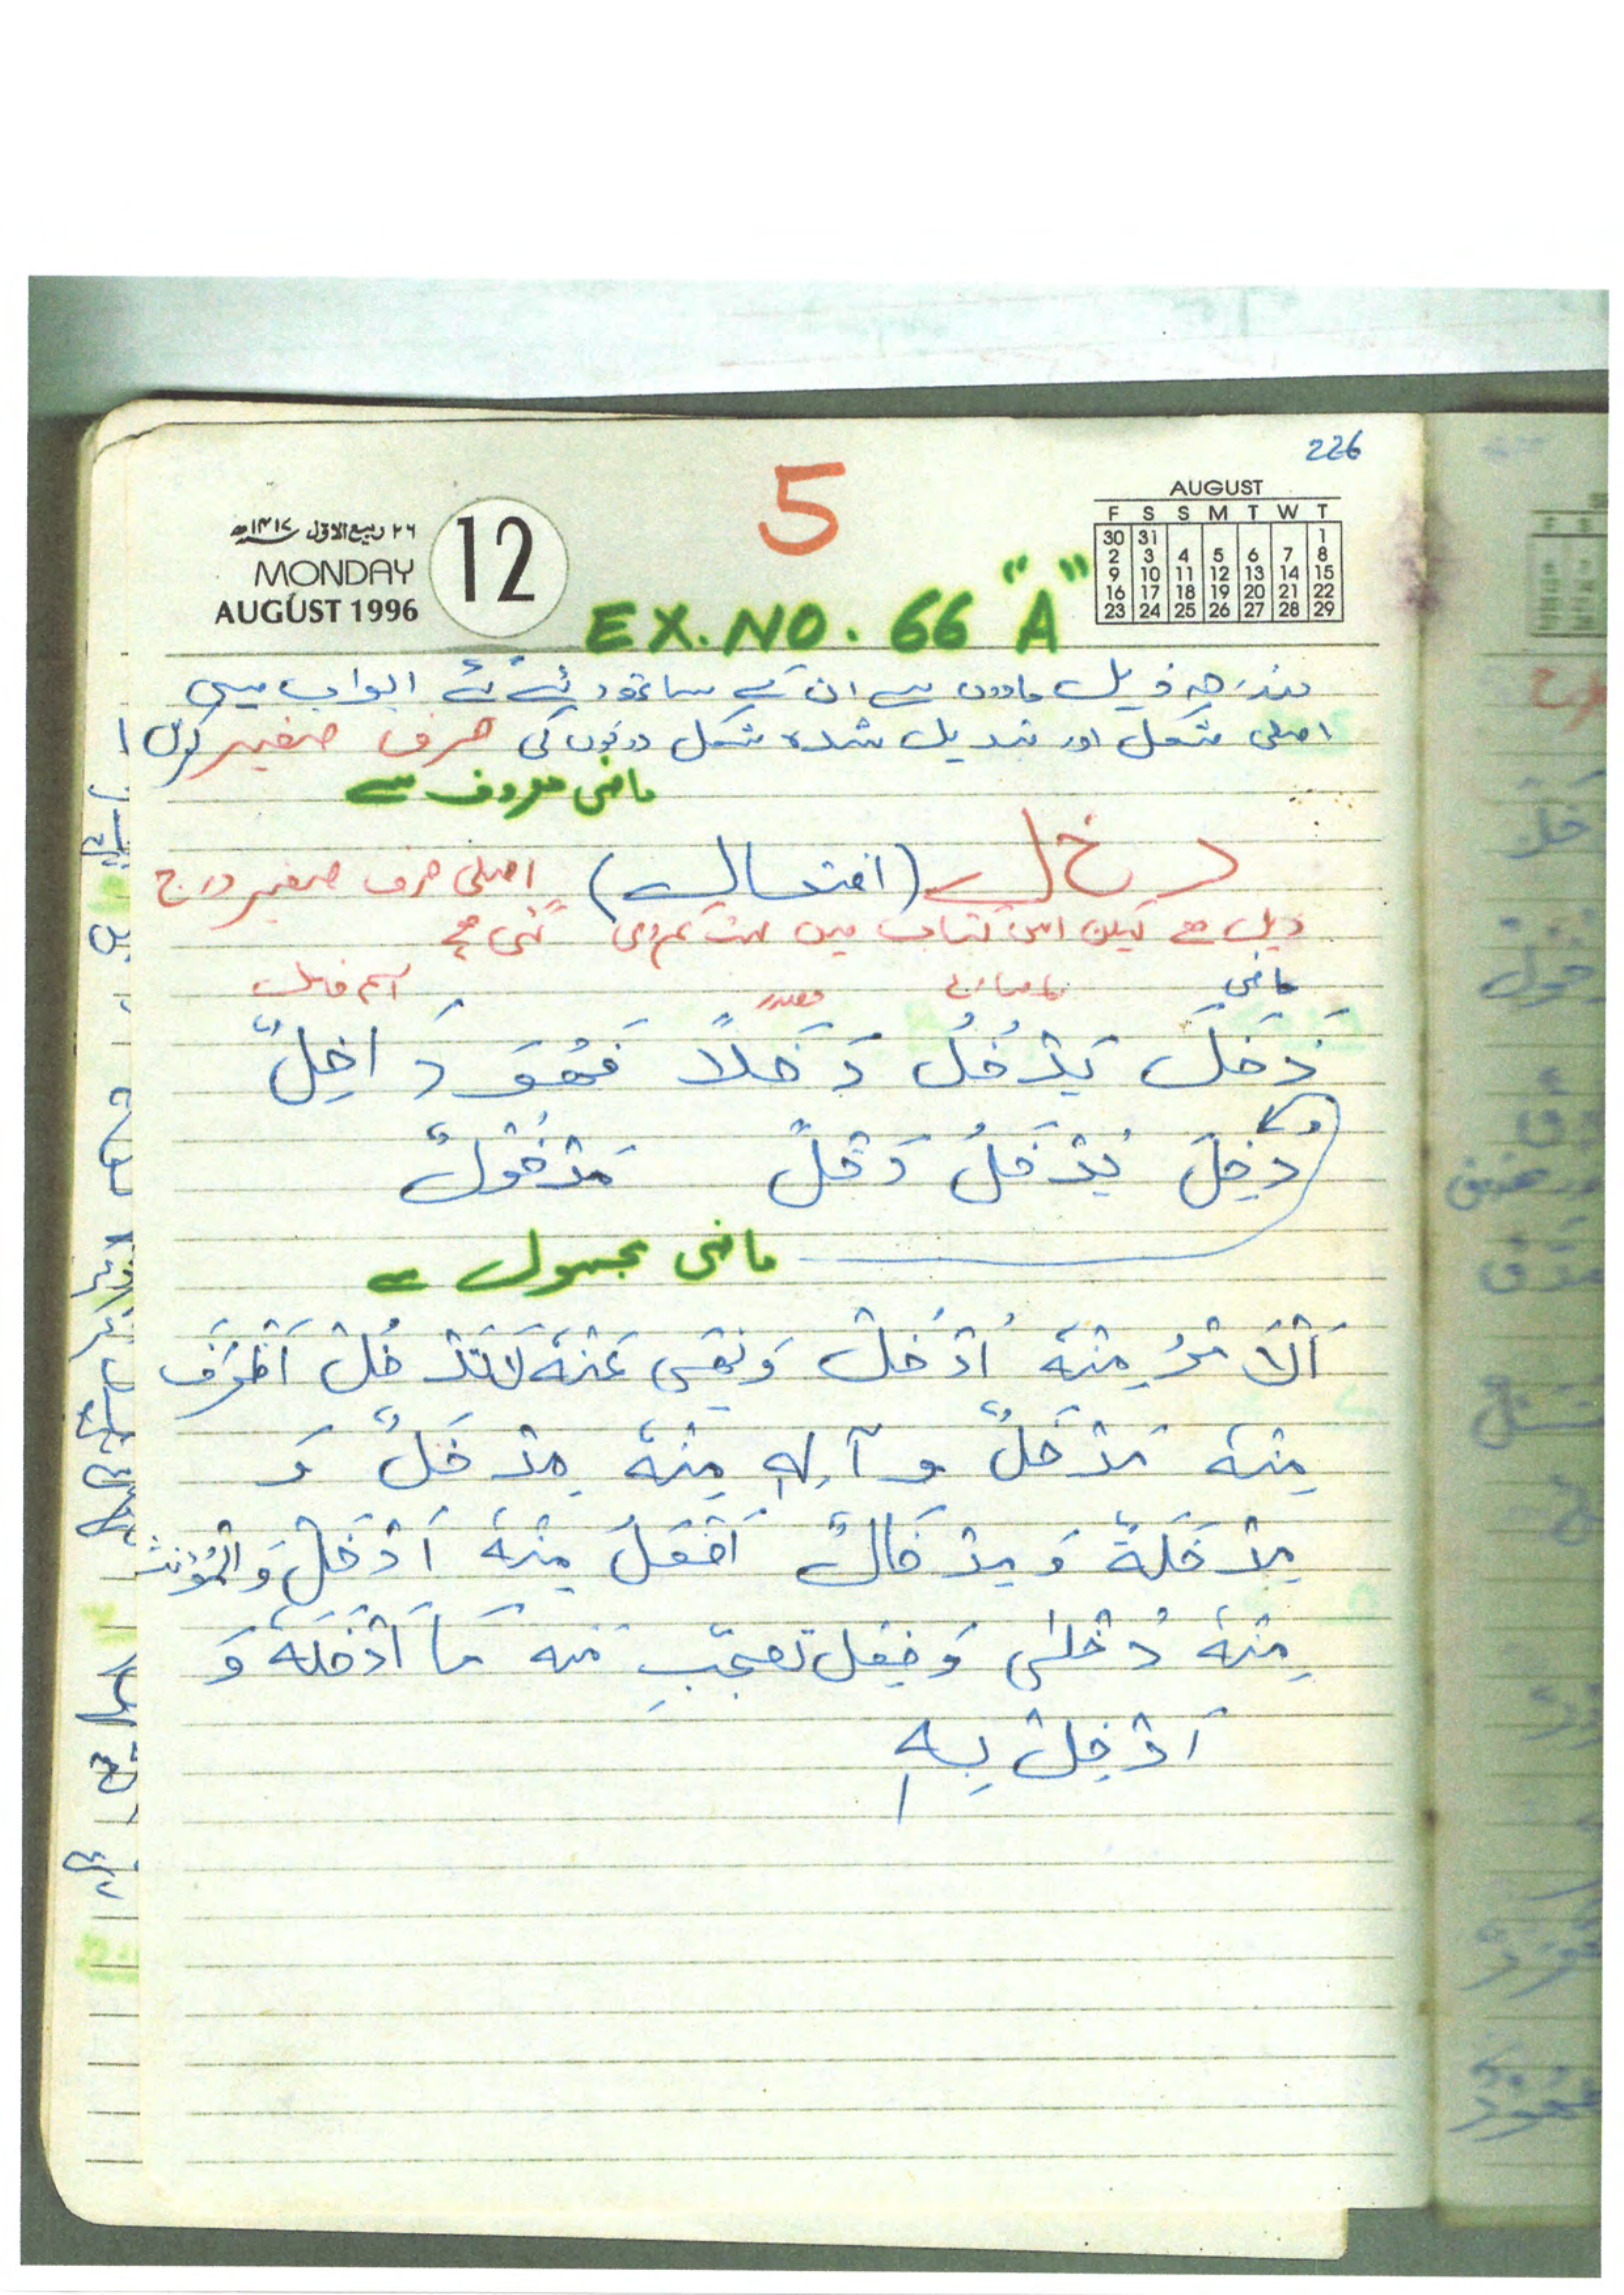 226
5
۲۶ ربیع الاول ۱۴۱۷ھ
MONDAY
AUGUST 1996
12
AUGUST
F S S M T W T
30 31 1
2 3 4 5 6 7 8
9 10 11 12 13 14 15
16 17 18 19 20 21 22
23 24 25 26 27 28 29
EX. NO. 66 "A"
مندرجہ ذیل مادوں سے ان کے ساتھ دیئے گئے ابواب میں
اصلی شکل اور تبدیل شدہ شکل دونوں کی صرف صغیر کریں
ماضی معروف سے
د خ ل (افتعال) اصلی صرف صغیر درج
ذیل ہے لیکن اس کتاب میں گئی ہے
ماضی مضارع مصدر اسم فاعل
دَخَلَ يَدْخُلُ دَخَلاً فَهُوَ دَاخِلٌ
وَ
دُخِلَ يُدْخَلُ دَخْلً مَدْخُوْلٌ
ماضی مجہول سے
اَلْاَمْرُ مِنْهُ اُدْخُلْ وَنَهِى عَنْهُ لَا تَدْخُلْ اَظْرَفَ
مِنْهُ مَدْخَلٌ وآلِهِ مِنْهُ مِدْخَلٌ وَ
مِدْخَلَةٌ وَ مِدْخَالٌ اَفْعَلُ مِنْهُ اَدْخَلُ وَالْمُؤَنَّث
مِنْهُ دُخْلٰى وَ فِعْل تَعَجُّبِ مِنه مَا اَدْخَلَهُ وَ
اَدْخِلْ بِهِ